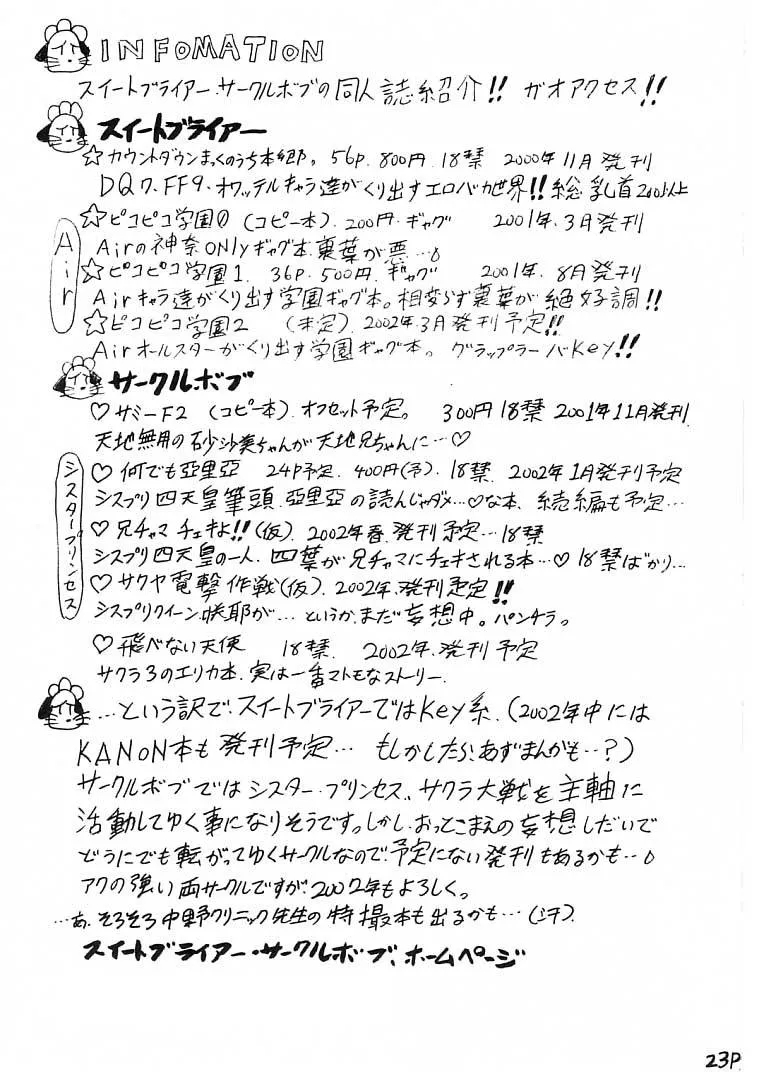 INFOMATION
スイートブライアー・サークルボブの同人誌紹介!! ガオアクセス!!
スイートブライアー
☆カウントダウンまっくのうち本郷。56p. 800円. 18禁 2000年11月発刊
DQ7、FF9、オワッテルキャラ達がくり出すエロバカ世界!!総乳首200以上
Air
☆ピコピコ学園0 (コピー本). 200円. ギャグ 2001年. 3月発刊
Airの神奈ONlyギャグ本. 裏葉が悪…。
☆ピコピコ学園1. 36p. 500円. ギャグ 2001年. 8月発刊
Airキャラ達がくり出す学園ギャグ本。相変らず裏葉が絶好調!!
☆ピコピコ学園2 (未定). 2002年. 3月発刊予定!!
Airオールスターがくり出す学園ギャグ本。グラップラーバKey!!
サークルボブ
♡サミーF2 (コピー本). オフセット予定。 300円 18禁 2001年11月発刊.
天地無用の砂沙美ちゃんが天地兄ちゃんに…♡
シスタープリンセス
♡何でも亞里亞 24P予定. 400円(予). 18禁. 2002年1月発刊予定
シスプリ四天皇筆頭. 亞里亞の読んじゃダメ…♡な本、続編も予定…
♡兄チャマ チェキよ!!(仮). 2002年春. 発刊予定…18禁
シスプリ四天皇の一人. 四葉が兄チャマにチェキされる本…♡ 18禁ばかり…
♡サクヤ電撃作戦(仮). 2002年. 発刊予定!!
シスプリクイーン咲耶が…というか、まだ妄想中。パンチラっ
♡飛べない天使 18禁. 2002年. 発刊予定
サクラ3のエリカ本. 実は一番マトモなストーリー.
…という訳で、スイートブライアーではKey系. (2002年中には
KANoN本も発刊予定… もしかしたら、あずまんがも…?)
サークルボブではシスター・プリンセス、サクラ大戦を主軸に
活動してゆく事になりそうですっしかし、おっとこまえの妄想しだいで
どうにでも転がってゆくサークルなので、予定にない発刊もあるかも…。
アクの強い両サークルですが、2002年もよろしく。
…あ、そろそろ中野クリニック先生の特撮本も出るかも…(汗).
スイートブライアー・サークルボブ、ホームページ
23P